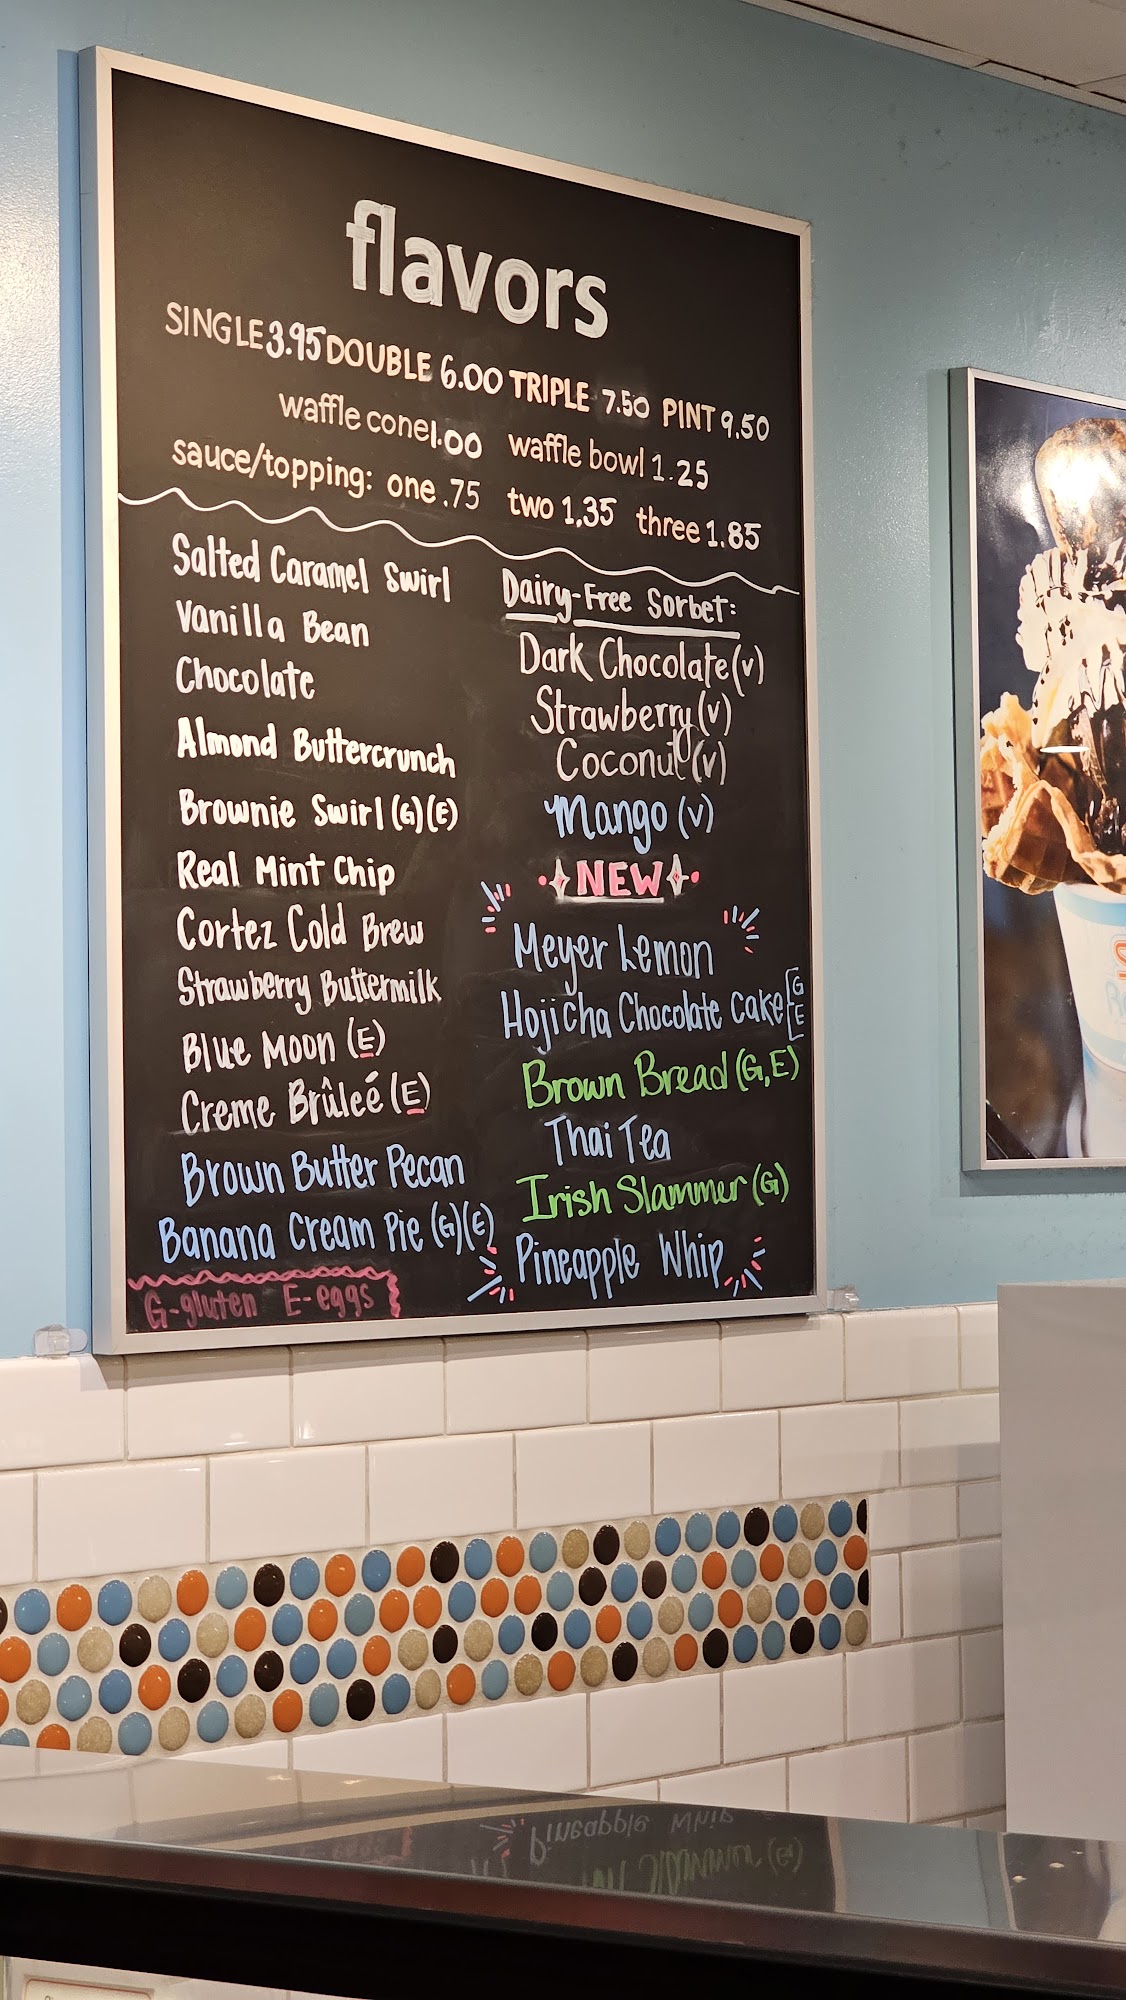 flavors
SINGLE 3.95 DOUBLE 6.00 TRIPLE 7.50 PINT 9.50
waffle cone 1.00 waffle bowl 1.25
sauce/topping: one .75 two 1.35 three 1.85
Salted Caramel Swirl
Vanilla Bean
Chocolate
Almond Buttercrunch
Brownie Swirl (G)(E)
Real Mint Chip
Cortez Cold Brew
Strawberry Buttermilk
Blue Moon (E)
Creme Brûleé (E)
Brown Butter Pecan
Banana Cream Pie (G)(E)
G-gluten E-eggs
Dairy-Free Sorbet:
Dark Chocolate (v)
Strawberry (v)
Coconut (v)
Mango (v)
NEW
Meyer Lemon
Hojicha Chocolate Cake [G E
Brown Bread (G,E)
Thai Tea
Irish Slammer (G)
Pineapple Whip